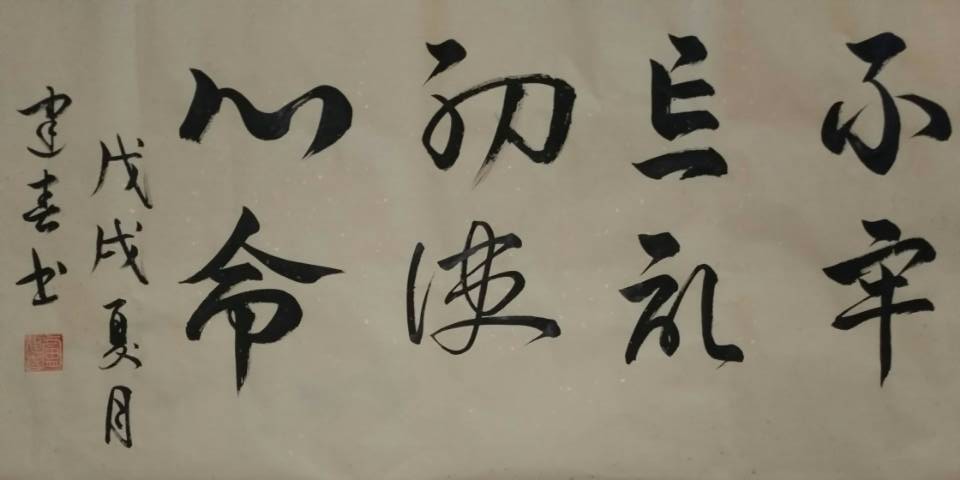 不忘初心
牢记使命
戊戌夏月
建春书